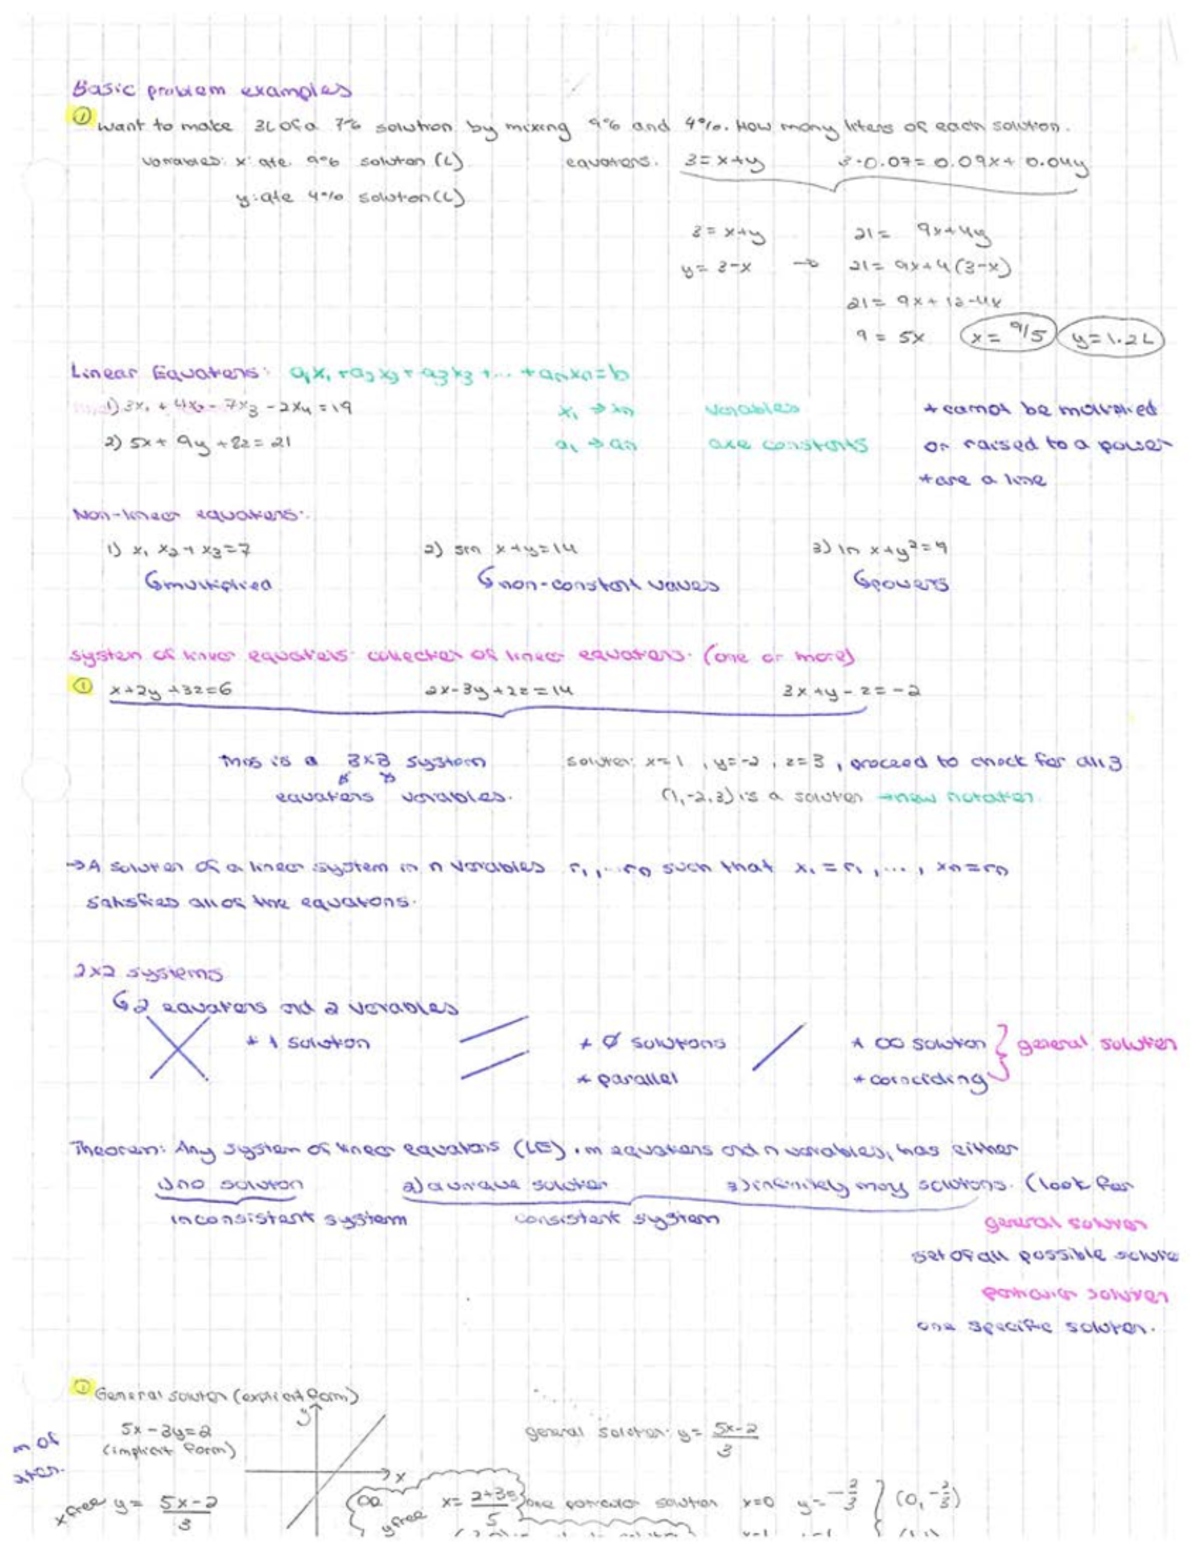 Basic problem examples
① want to make 3L of a 7% solution by mixing 9% and 4%. How many liters of each solution.
variables: x: qte 9% solution (L) equations: 3=x+y 3·0.07=0.09x+0.04y
y: qte 4% solution (L)
3=x+y 21= 9x+4y
y=3-x → 21=9x+4(3-x)
21=9x+12-4x
9=5x x=9/5 y=1.2L
Linear Equations: a₁x₁+a₂x₂+a₃x₃+...+aₙxₙ=b
1) 3x₁+4x₂-7x₃-2x₄=19 x₁→xₙ variables *cannot be multiplied
2) 5x+9y+8z=21 a₁→aₙ are constants or raised to a power
*are a line
Non-linear equations:
1) x₁x₂+x₃=7 2) sin x+y=14 3) ln x+y²=9
↳multiplied ↳non-constant values ↳powers
system of linear equations: collection of linear equations. (one or more)
① x+2y+3z=6 2x-3y+2z=14 3x+y-z=-2
This is a 3x3 system solution: x=1, y=-2, z=3, proceed to check for all 3
equations variables. (1,-2,3) is a solution →new notation
→A solution of a linear system in n variables r₁,...rₙ such that x₁=r₁,..., xₙ=rₙ
satisfies all of the equations.
2x2 systems
↳2 equations and 2 variables
* 1 solution * Ø solutions * ∞ solution } general solution
* parallel * coinciding
Theorem: Any system of linear equations (LE), m equations and n variables, has either
1)no solution 2)a unique solution 3)infinitely many solutions. (look for
inconsistent system consistent system general solution
set of all possible solutio
particular solution
one specific solution.
① General solution (explicit form) y
5x-3y=2 general solution: y= 5x-2/3
(implicit form)
x
x free y= 5x-2/3 OR y free x= 2+3s/5 one particular solution x=0 y=-2/3 } (0,-2/3)